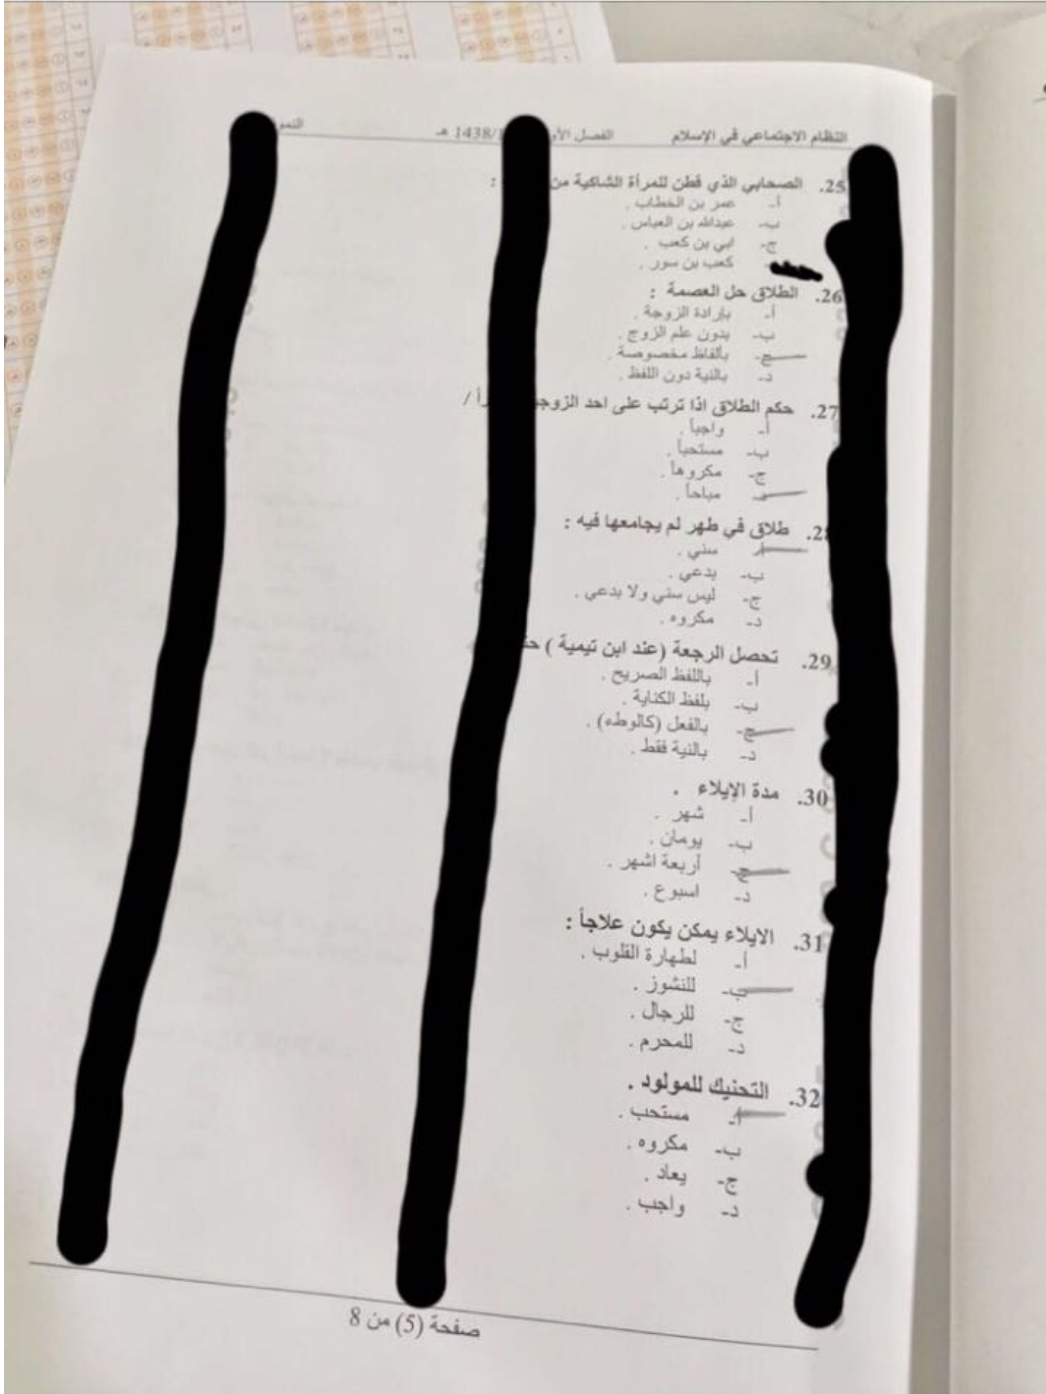 النظام الاجتماعي في الإسلام الفصل 1438/ هـ
25. الصحابي الذي فطن للمرأة الشاكية من :
أ- عمر بن الخطاب .
ب- عبدالله بن العباس .
ج- ابي بن كعب .
كعب بن سور .
26. الطلاق حل العصمة :
أ- بإرادة الزوجة .
ب- بدون علم الزوج .
ج- بألفاظ مخصوصة .
د- بالنية دون اللفظ .
27. حكم الطلاق اذا ترتب على احد /
أ- واجباً .
ب- مستحباً .
ج- مكروهاً .
د- مباحاً .
طلاق في طهر لم يجامعها فيه :
أ- سني .
ب- بدعي .
ج- ليس سني ولا بدعي .
د- مكروه .
29. تحصل الرجعة (عند ابن تيمية )
أ- باللفظ الصريح .
ب- بلفظ الكناية .
ج- بالفعل (كالوطء) .
د- بالنية فقط .
30. مدة الإيلاء .
أ- شهر .
ب- يومان .
ج- أربعة اشهر .
د- اسبوع .
31. الايلاء يمكن يكون علاجاً :
أ- لطهارة القلوب .
ب- للنشوز .
ج- للرجال .
د- للمحرم .
32. التحنيك للمولود .
أ- مستحب .
ب- مكروه .
ج- يعاد .
د- واجب .
صفحة (5) من 8